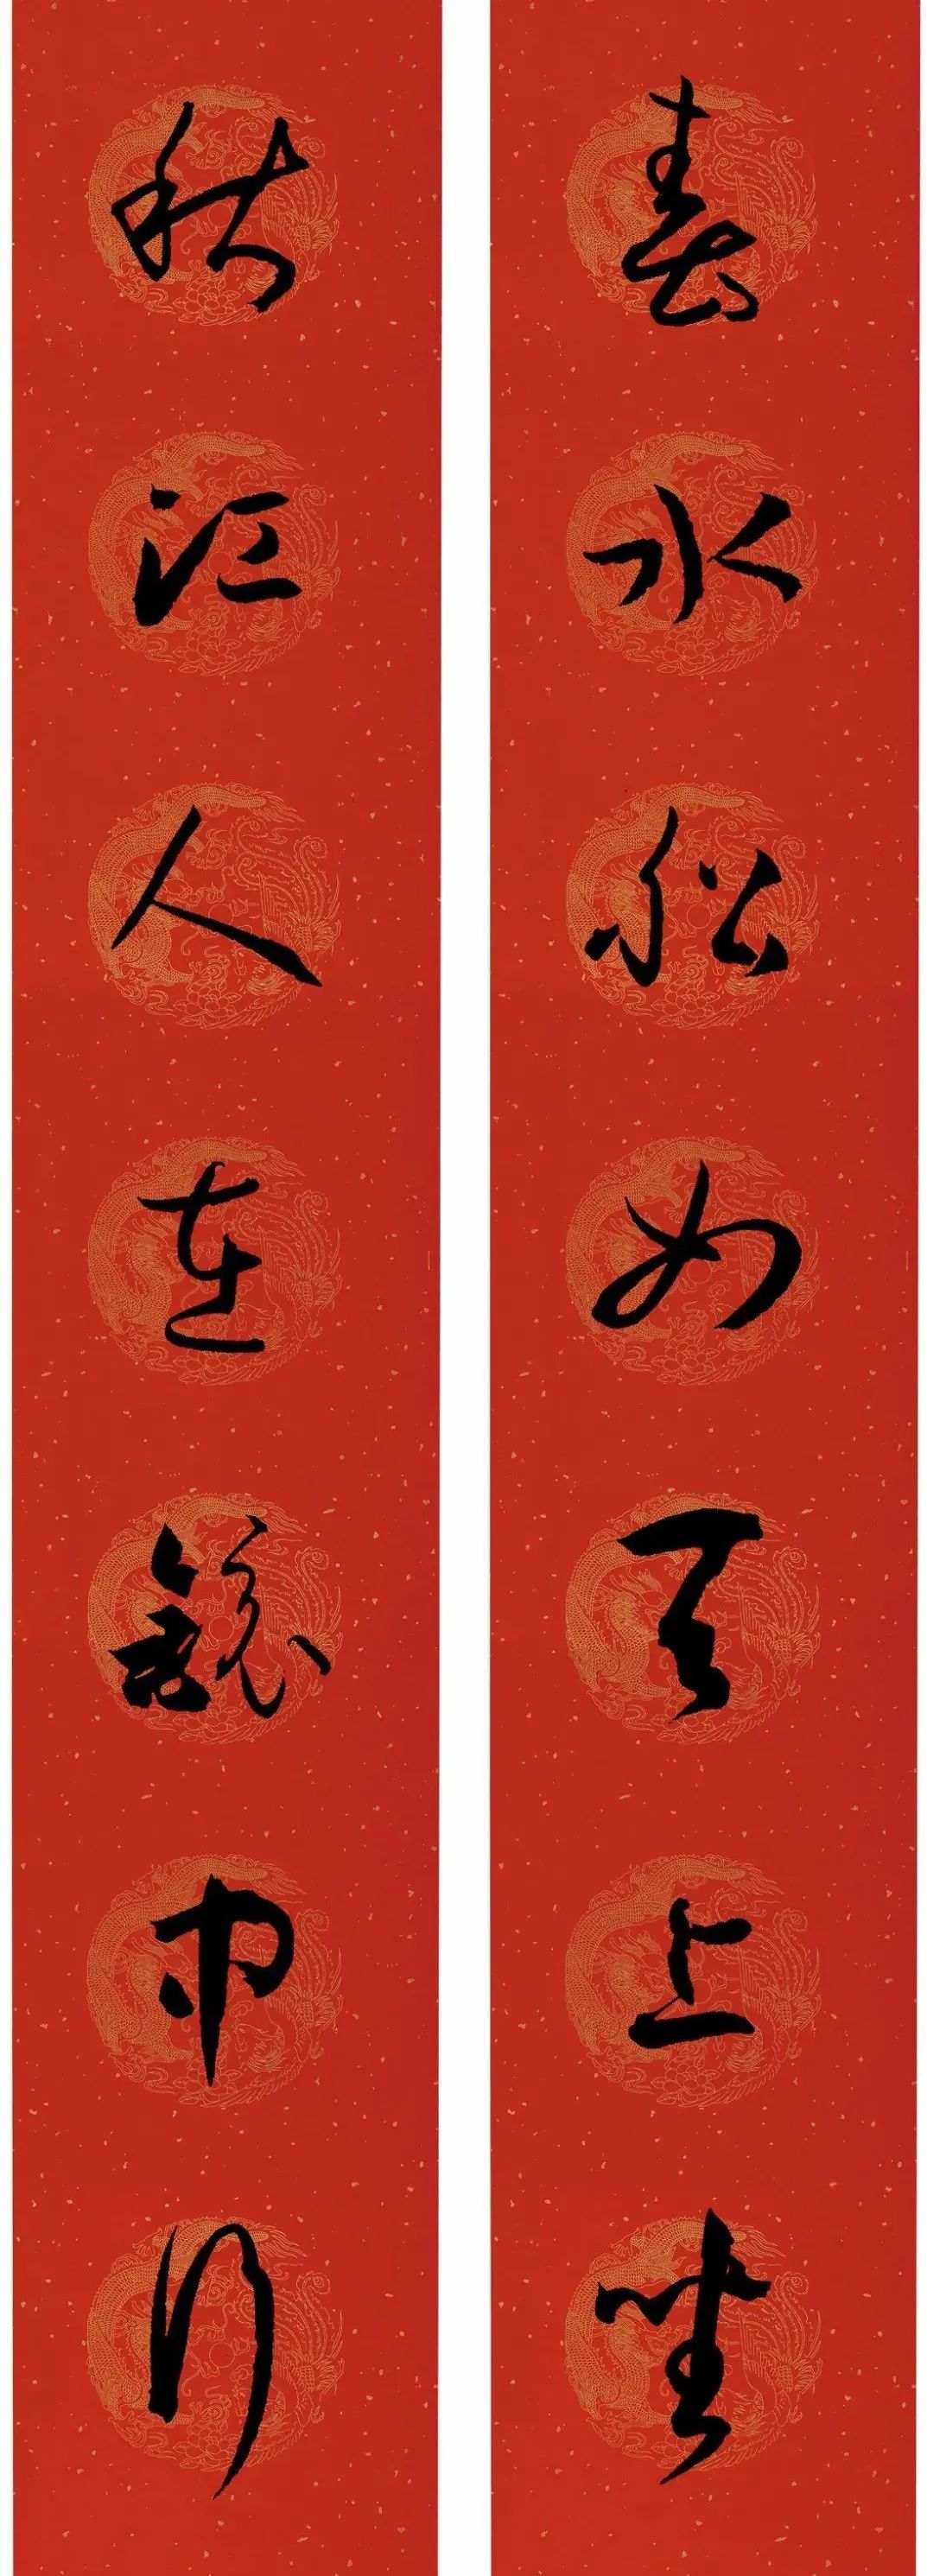 春水船如天上坐
秋江人在鏡中行